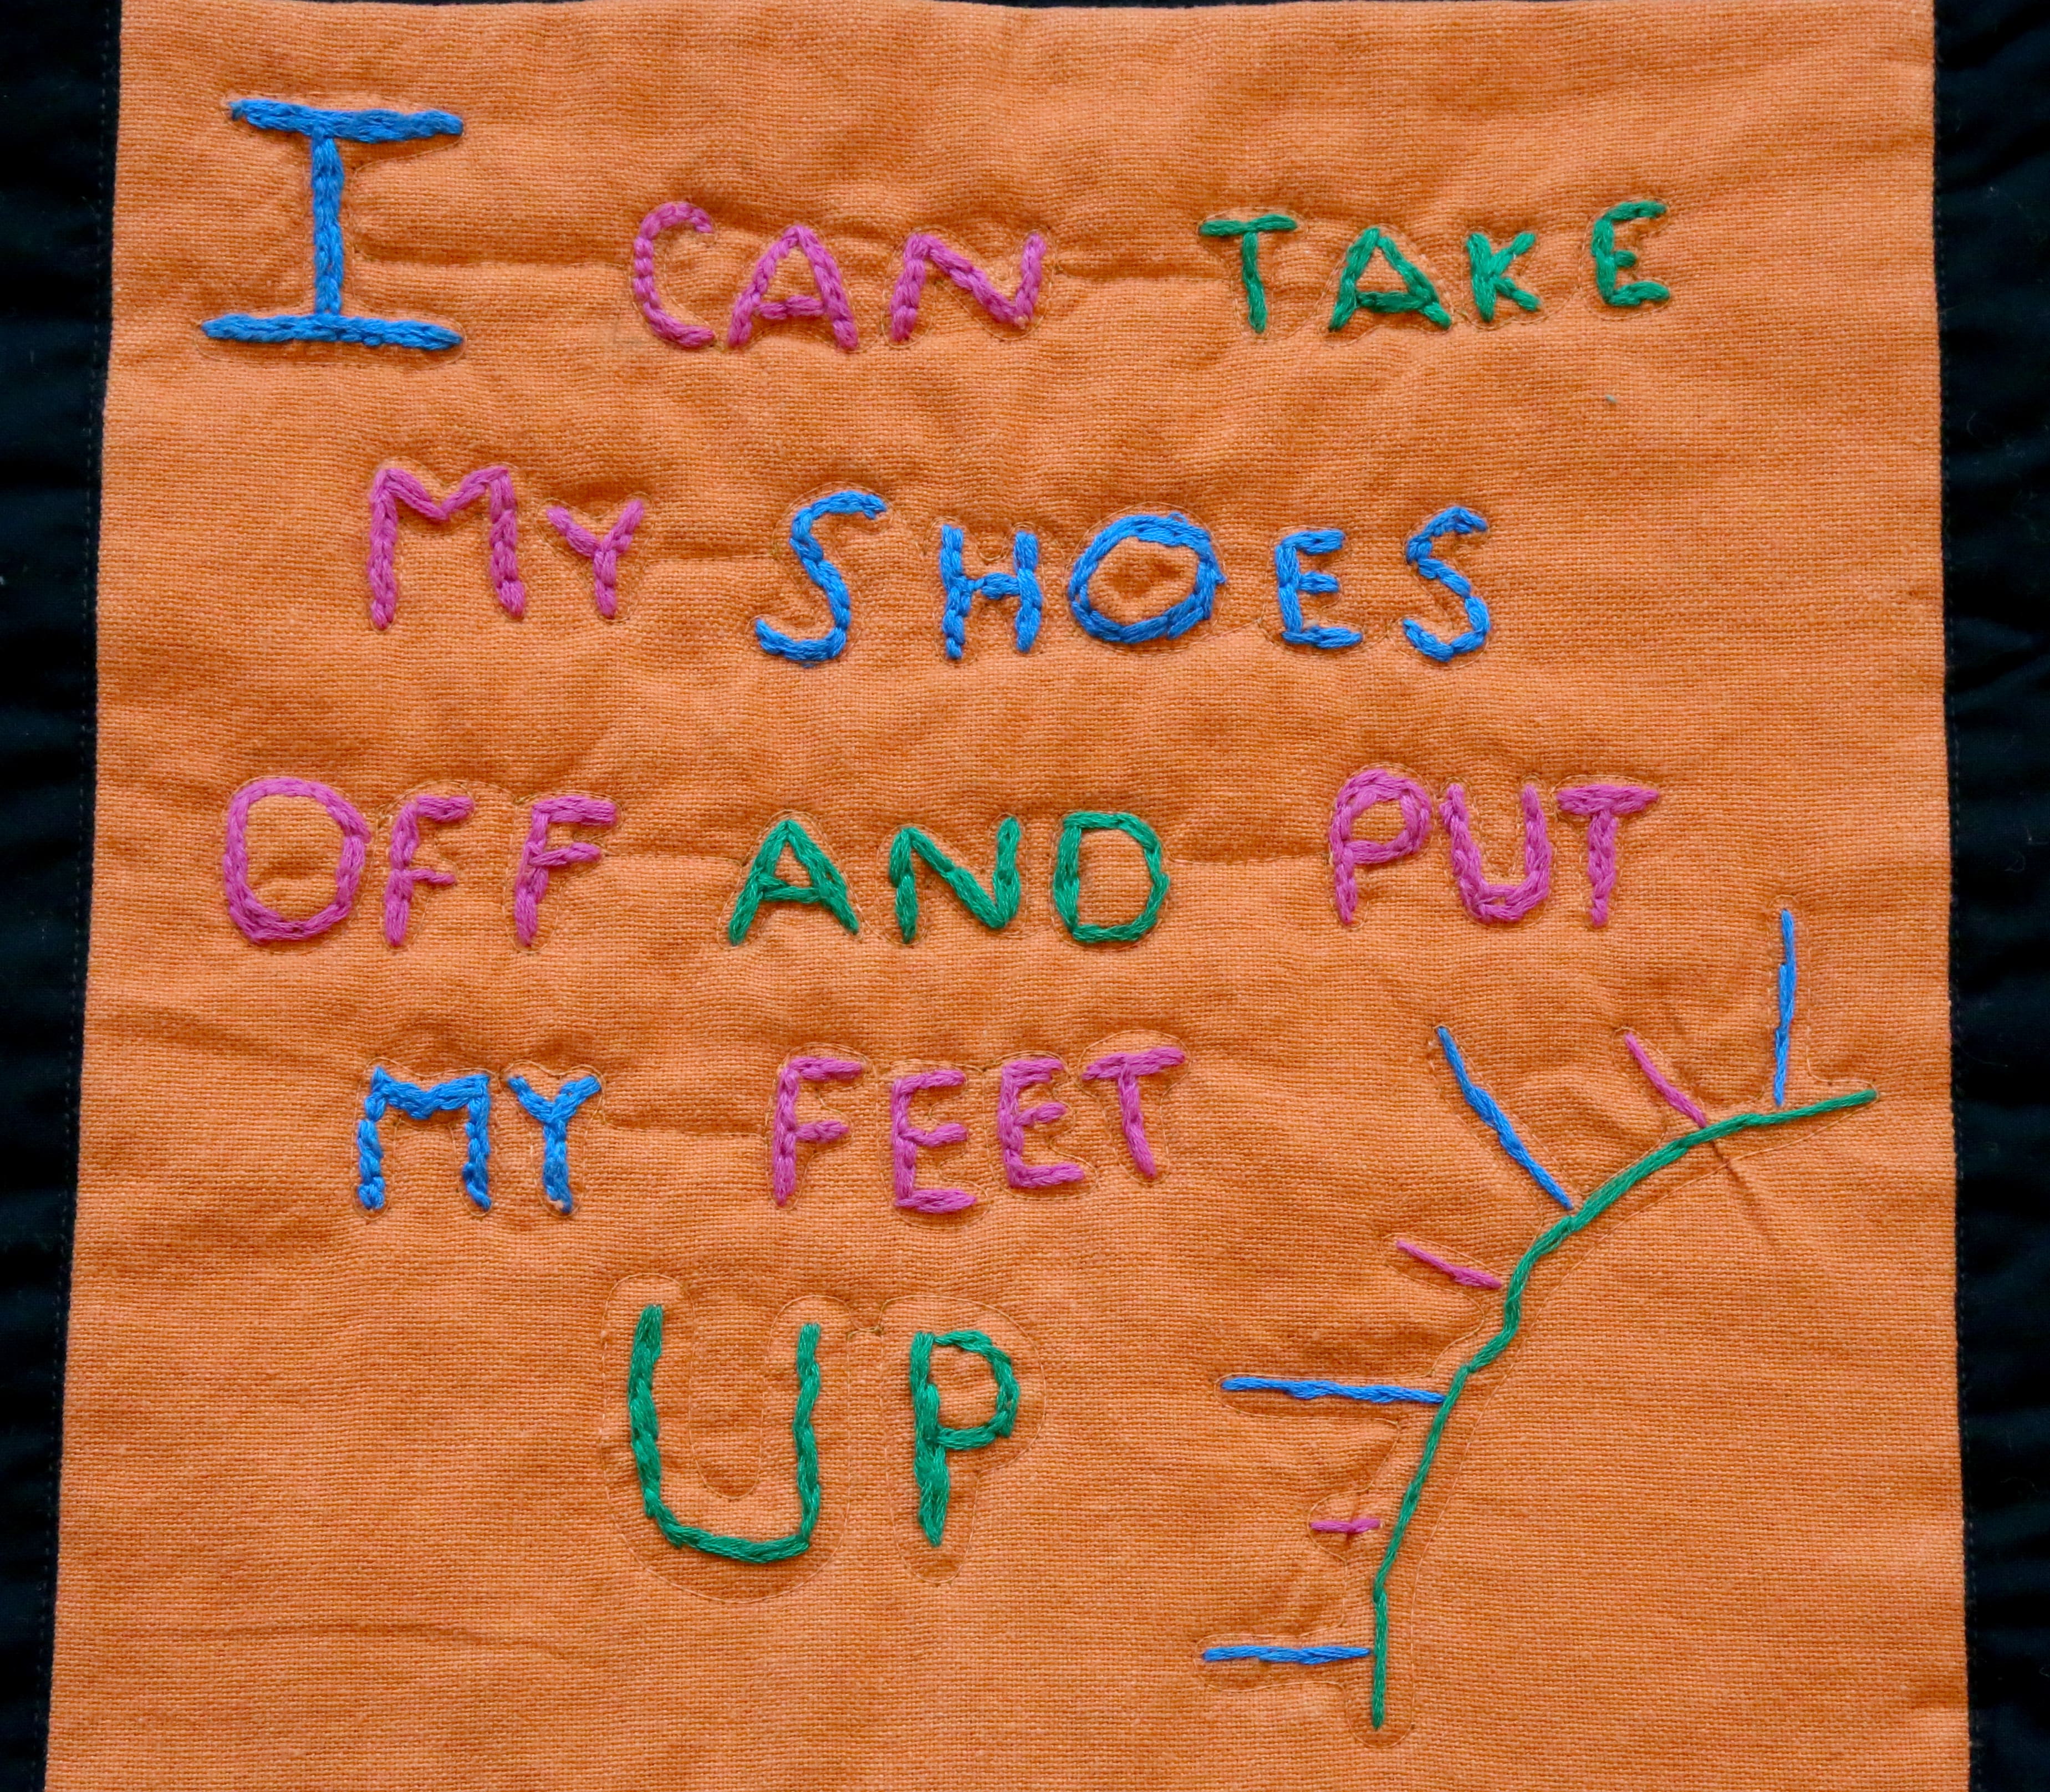 I CAN TAKE
MY SHOES
OFF AND PUT
MY FEET
UP